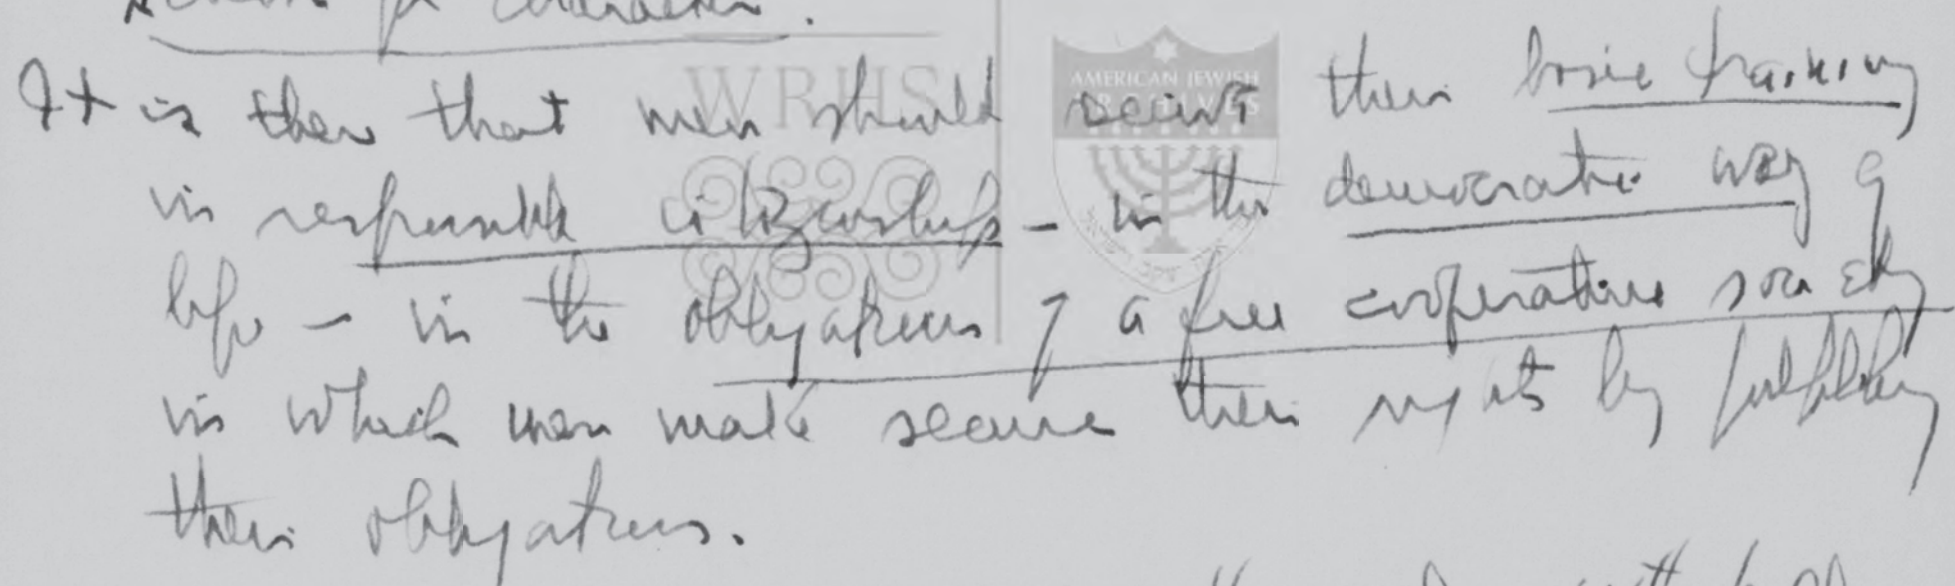 for character.
It is there that men should receive their basic training
in responsible citizenship – in the democratic way of
life – in the obligations of a free cooperative society
in which men make secure their rights by fulfilling
their obligations.
WRHS
AMERICAN JEWISH
ARCHIVES